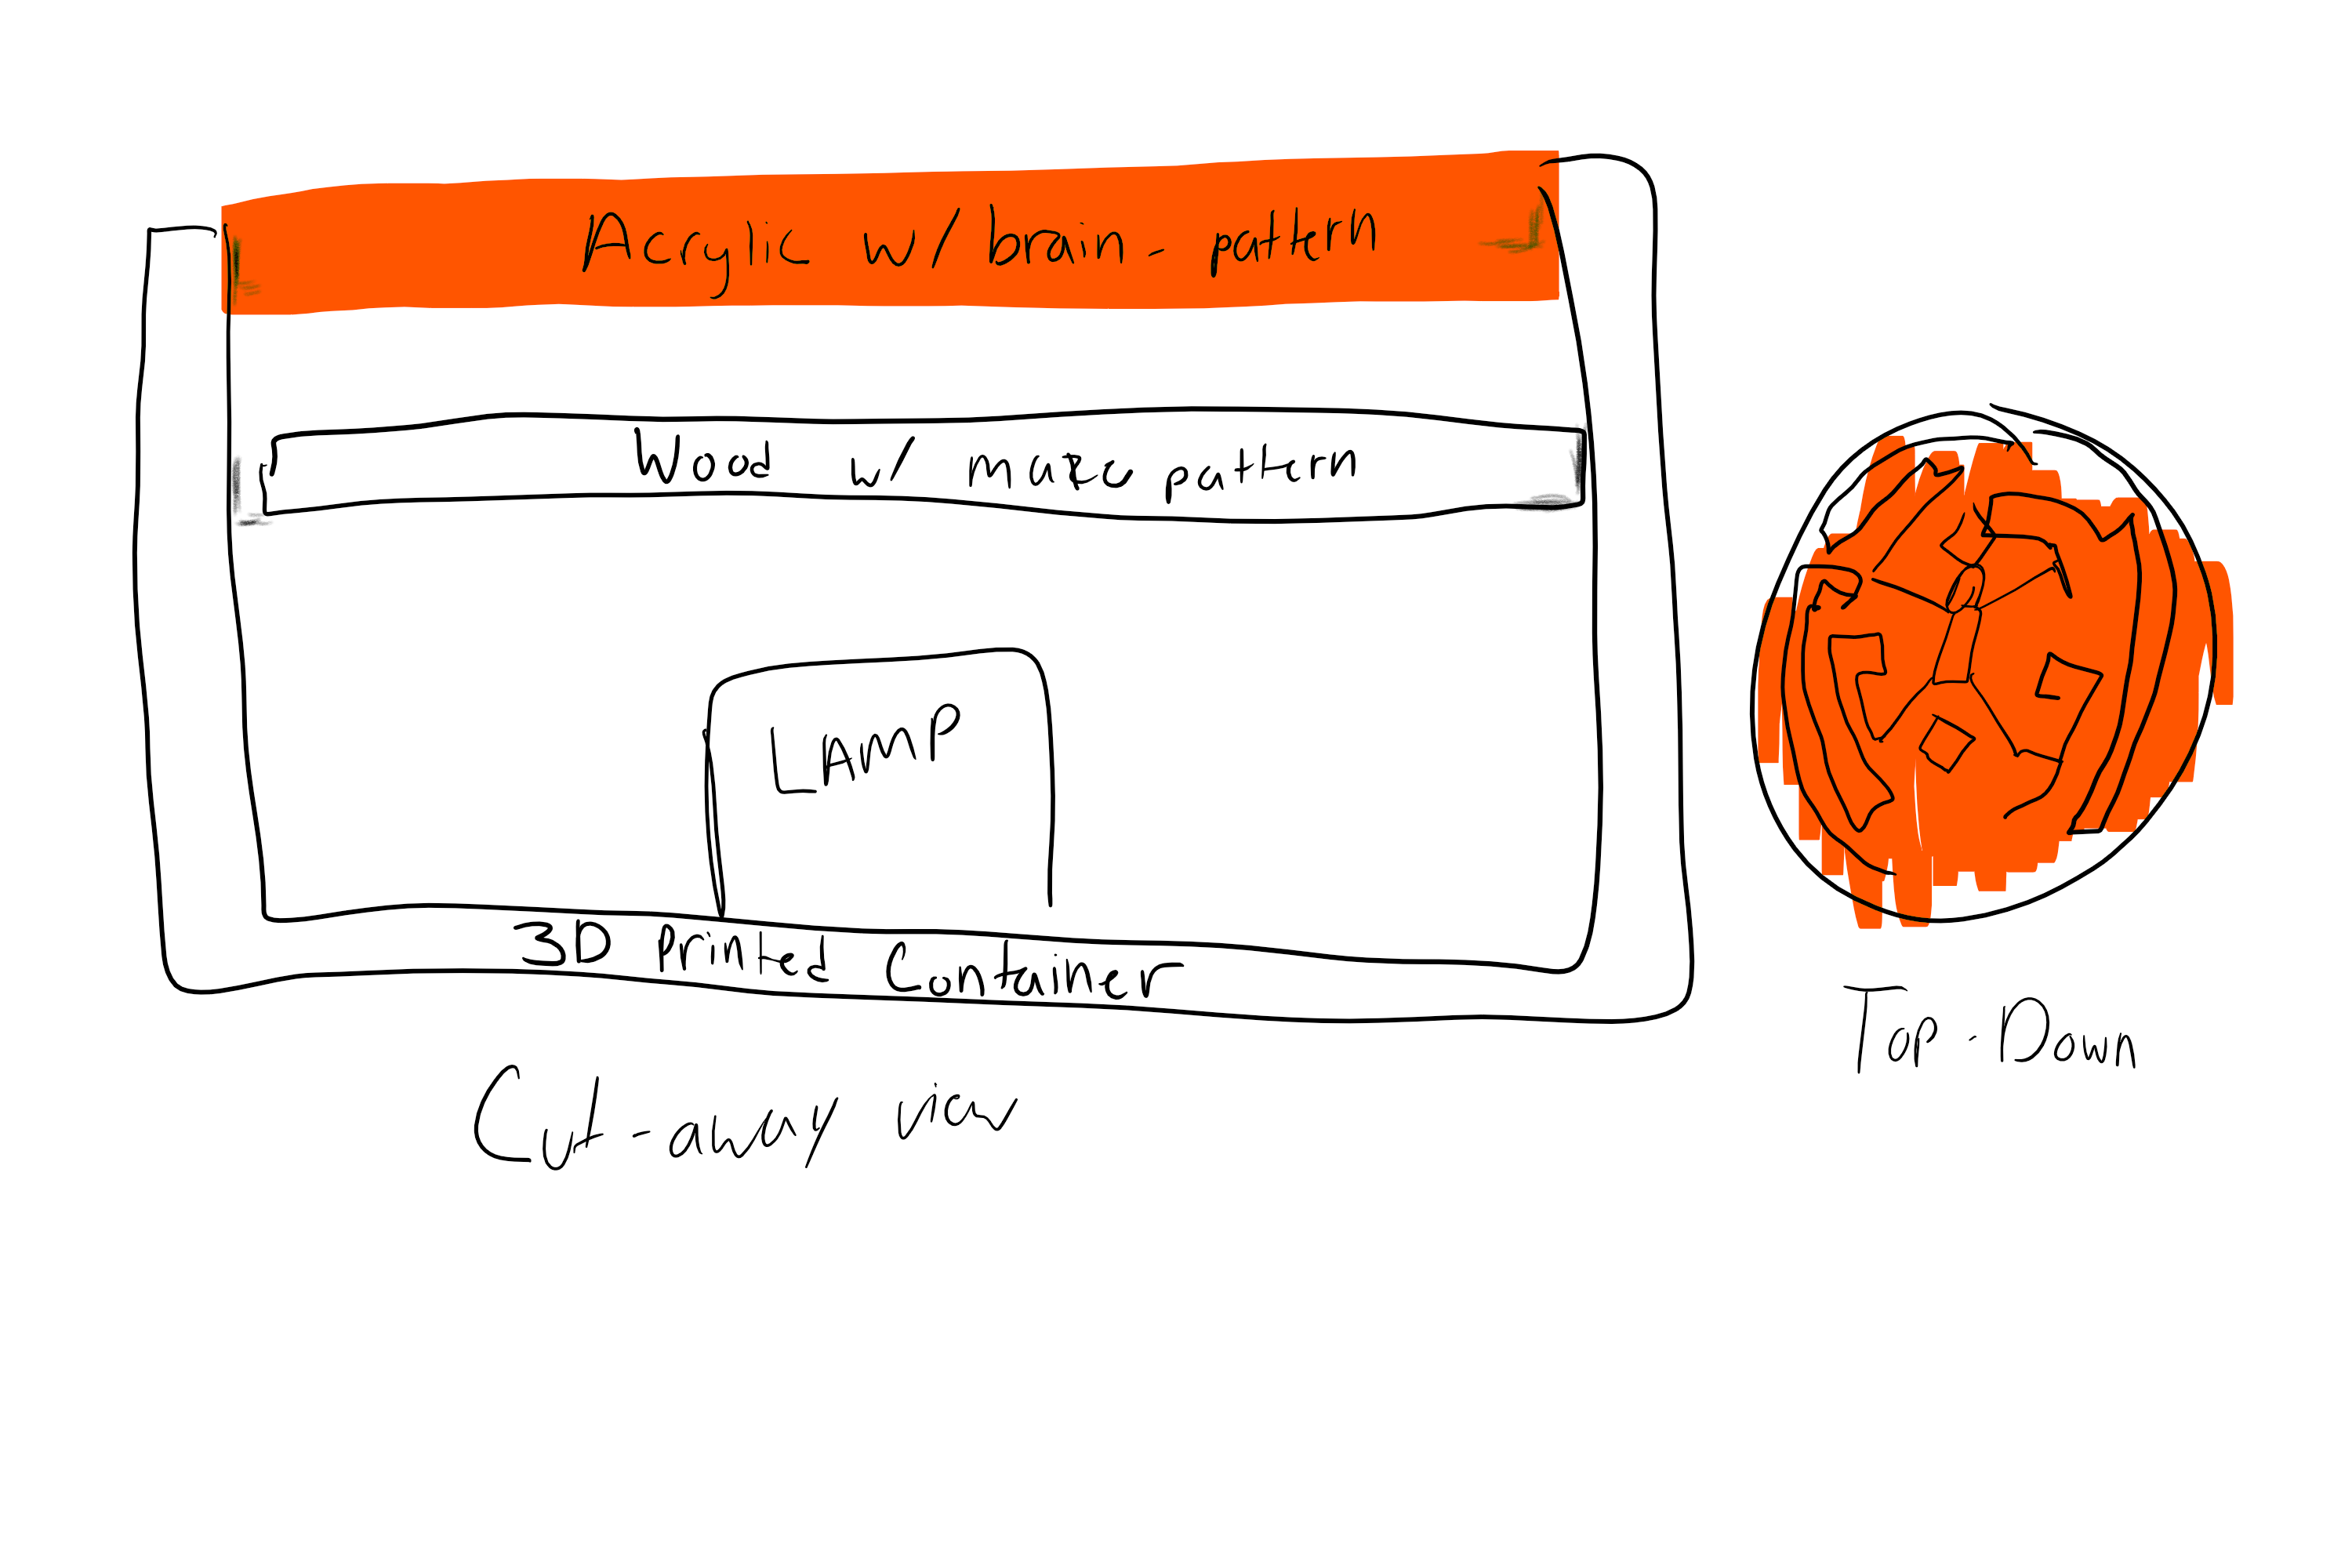 Acrylic w/ brain-pattern
Wood w/ maze pattern
LAMP
3D Printed Container
Cut-away view
Top-Down